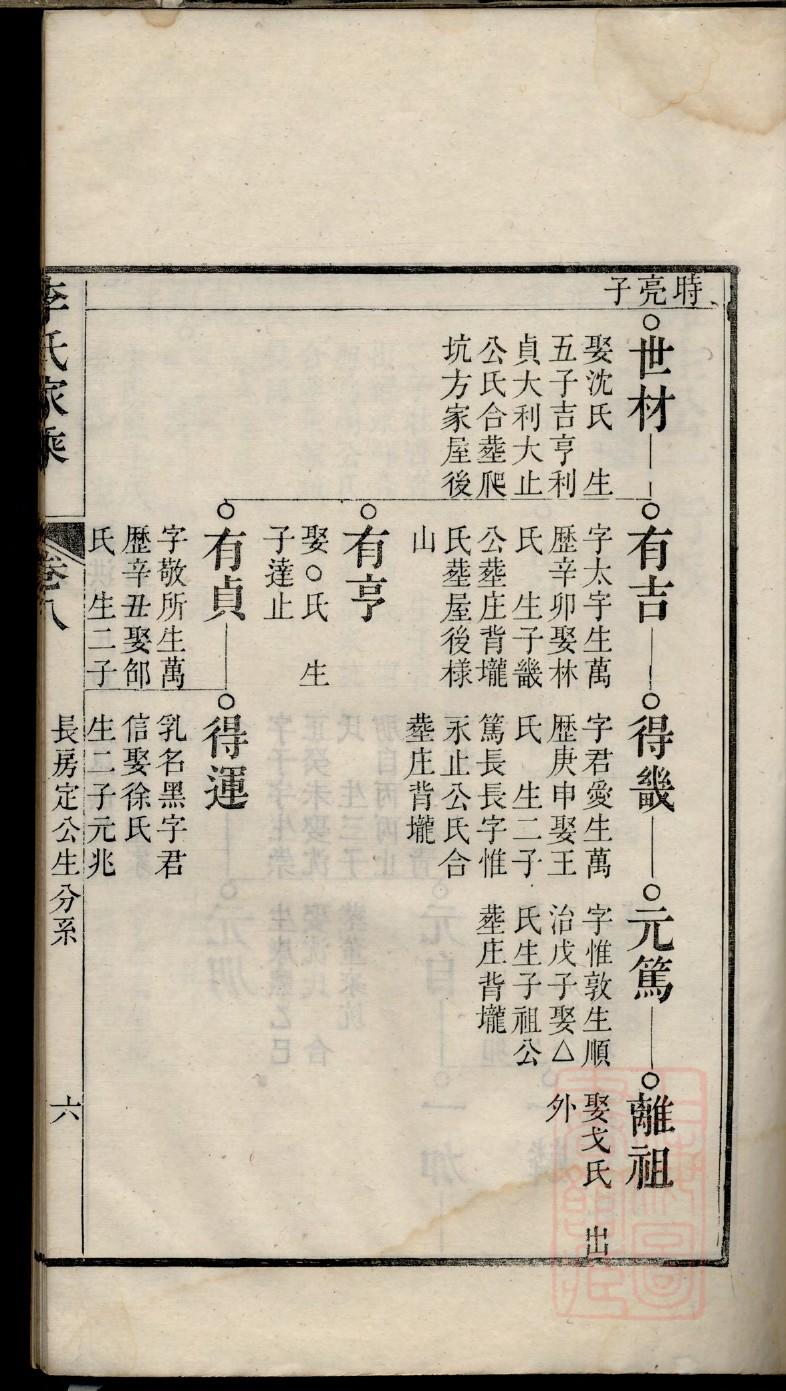 時亮子
世材
娶沈氏　生
五子吉亨利
貞大利大止
公氏合塟爬
坑方家屋後
有吉
字太字生萬
歴辛卯娶林
氏　生子畿
公塟庄背壠
氏塟屋後様
山
得畿
字君愛生萬
歴庚申娶王
氏　生二子
篤長長字惟
永止公氏合
塟庄背壠
元篤
字惟敦生順
治戊子娶△
氏生子祖公
塟庄背壠
離祖
娶戈氏　出
外
有亨
娶○氏　生
子達止
有貞
字敬所生萬
歴辛丑娶郇
氏　生二子
得運
乳名黑字君
信娶徐氏
生二子元兆
李氏家乘
卷八
長房定公生分系
六